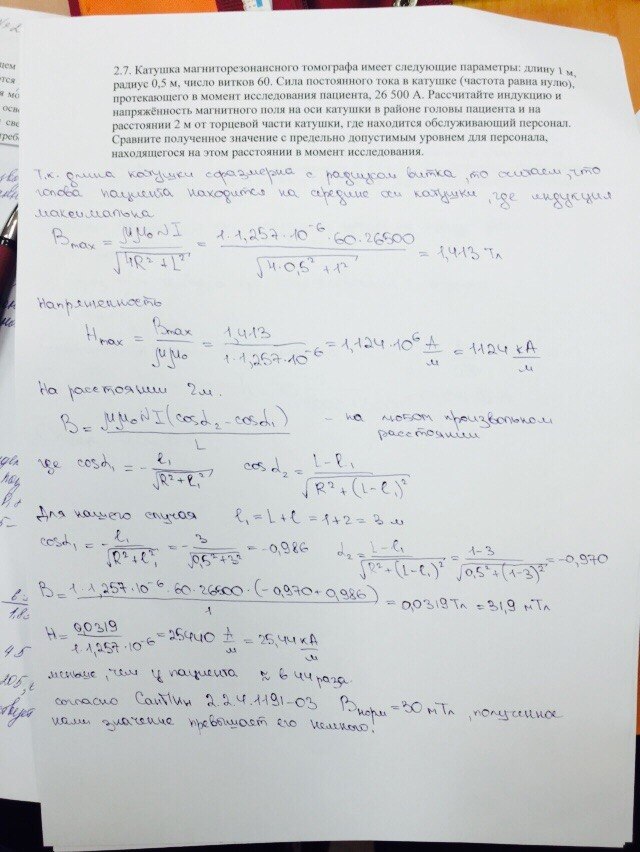 2.7. Катушка магниторезонансного томографа имеет следующие параметры: длину 1 м,
радиус 0,5 м, число витков 60. Сила постоянного тока в катушке (частота равна нулю),
протекающего в момент исследования пациента, 26 500 А. Рассчитайте индукцию и
напряжённость магнитного поля на оси катушки в районе головы пациента и на
расстоянии 2 м от торцевой части катушки, где находится обслуживающий персонал.
Сравните полученное значение с предельно допустимым уровнем для персонала,
находящегося на этом расстоянии в момент исследования.
Т.к. длина катушки сразмерна с радиусом витка, то считаем, что
голова пациента находится на середине оси катушки, где индукция
максимальна
Bmax = μμ₀NI / √(4R² + L²) = 1·1,257·10⁻⁶·60·26500 / √(4·0,5² + 1²) = 1,413 Тл
Напряженность
Hmax = Bmax / μμ₀ = 1,413 / 1·1,257·10⁻⁶ = 1,124·10⁶ А/м = 1124 кА/м
На расстоянии 2 м.
B = μμ₀NI(cosα₂ - cosα₁) / L - на любом произвольном
расстоянии
где cosα₁ = - l₁ / √(R² + l₁²) cosα₂ = L - l₁ / √(R² + (L - l₁)²)
Для нашего случая l₁ = L + l = 1 + 2 = 3 м
cosα₁ = - l₁ / √(R² + l₁²) = - 3 / √(0,5² + 3²) = -0,986 α₂ = L - l₁ / √(R² + (L - l₁)²) = 1 - 3 / √(0,5² + (1 - 3)²) = -0,970
B = 1·1,257·10⁻⁶·60·26500·(-0,970 + 0,986) / 1 = 0,0319 Тл = 31,9 мТл
H = 0,0319 / 1·1,257·10⁻⁶ = 25440 А/м = 25,44 кА/м
меньше, чем у пациента ≈ в 44 раза.
согласно СанПин 2.2.4.1191-03 Bнорм = 30 мТл, полученное
нами значение превышает его немного.